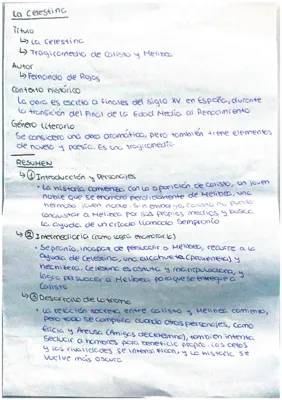 La Celestina
Título
↳ La Celestina
↳ Tragicomedia de Calisto y Melibea
Autor
↳ Fernando de Rojas
Contexto histórico
La obra es escrita a finales del siglo XV en España, durante
la transición del final de la Edad Media al Renacimiento
Género literario
Se considera una obra dramática, pero también tiene elementos
de novela y poesía. Es una tragicomedia
RESUMEN
↳ ① Introducción y Personajes
• La historia comienza con la aparición de Calisto, un joven
noble que se enamora perdidamente de Melibea, una
hermosa joven noble. Sin embargo, Calisto no puede
conquistar a Melibea por sus propios medios y busca
la ayuda de un criado llamado Sempronio
↳ ② Intermediaria (como logra enamorarla)
• Sempronio, incapaz de persuadir a Melibea, recurre a la
ayuda de Celestina, una alcahueta (prostituta) y
hechicera. Celestina es astuta y manipuladora, y
logra persuadir a Melibea para que se entregue a
Calisto
↳ ③ Desarrollo de la trama
• La relación secreta entre Calisto y Melibea comienza,
pero todo se complica cuando otros personajes, como
Elicia y Areusa (Amigas de Celestina), también intentan
seducir a hombres para beneficio propio. Los celos
y las rivalidades se intensifican, y la historia se
vuelve más oscura